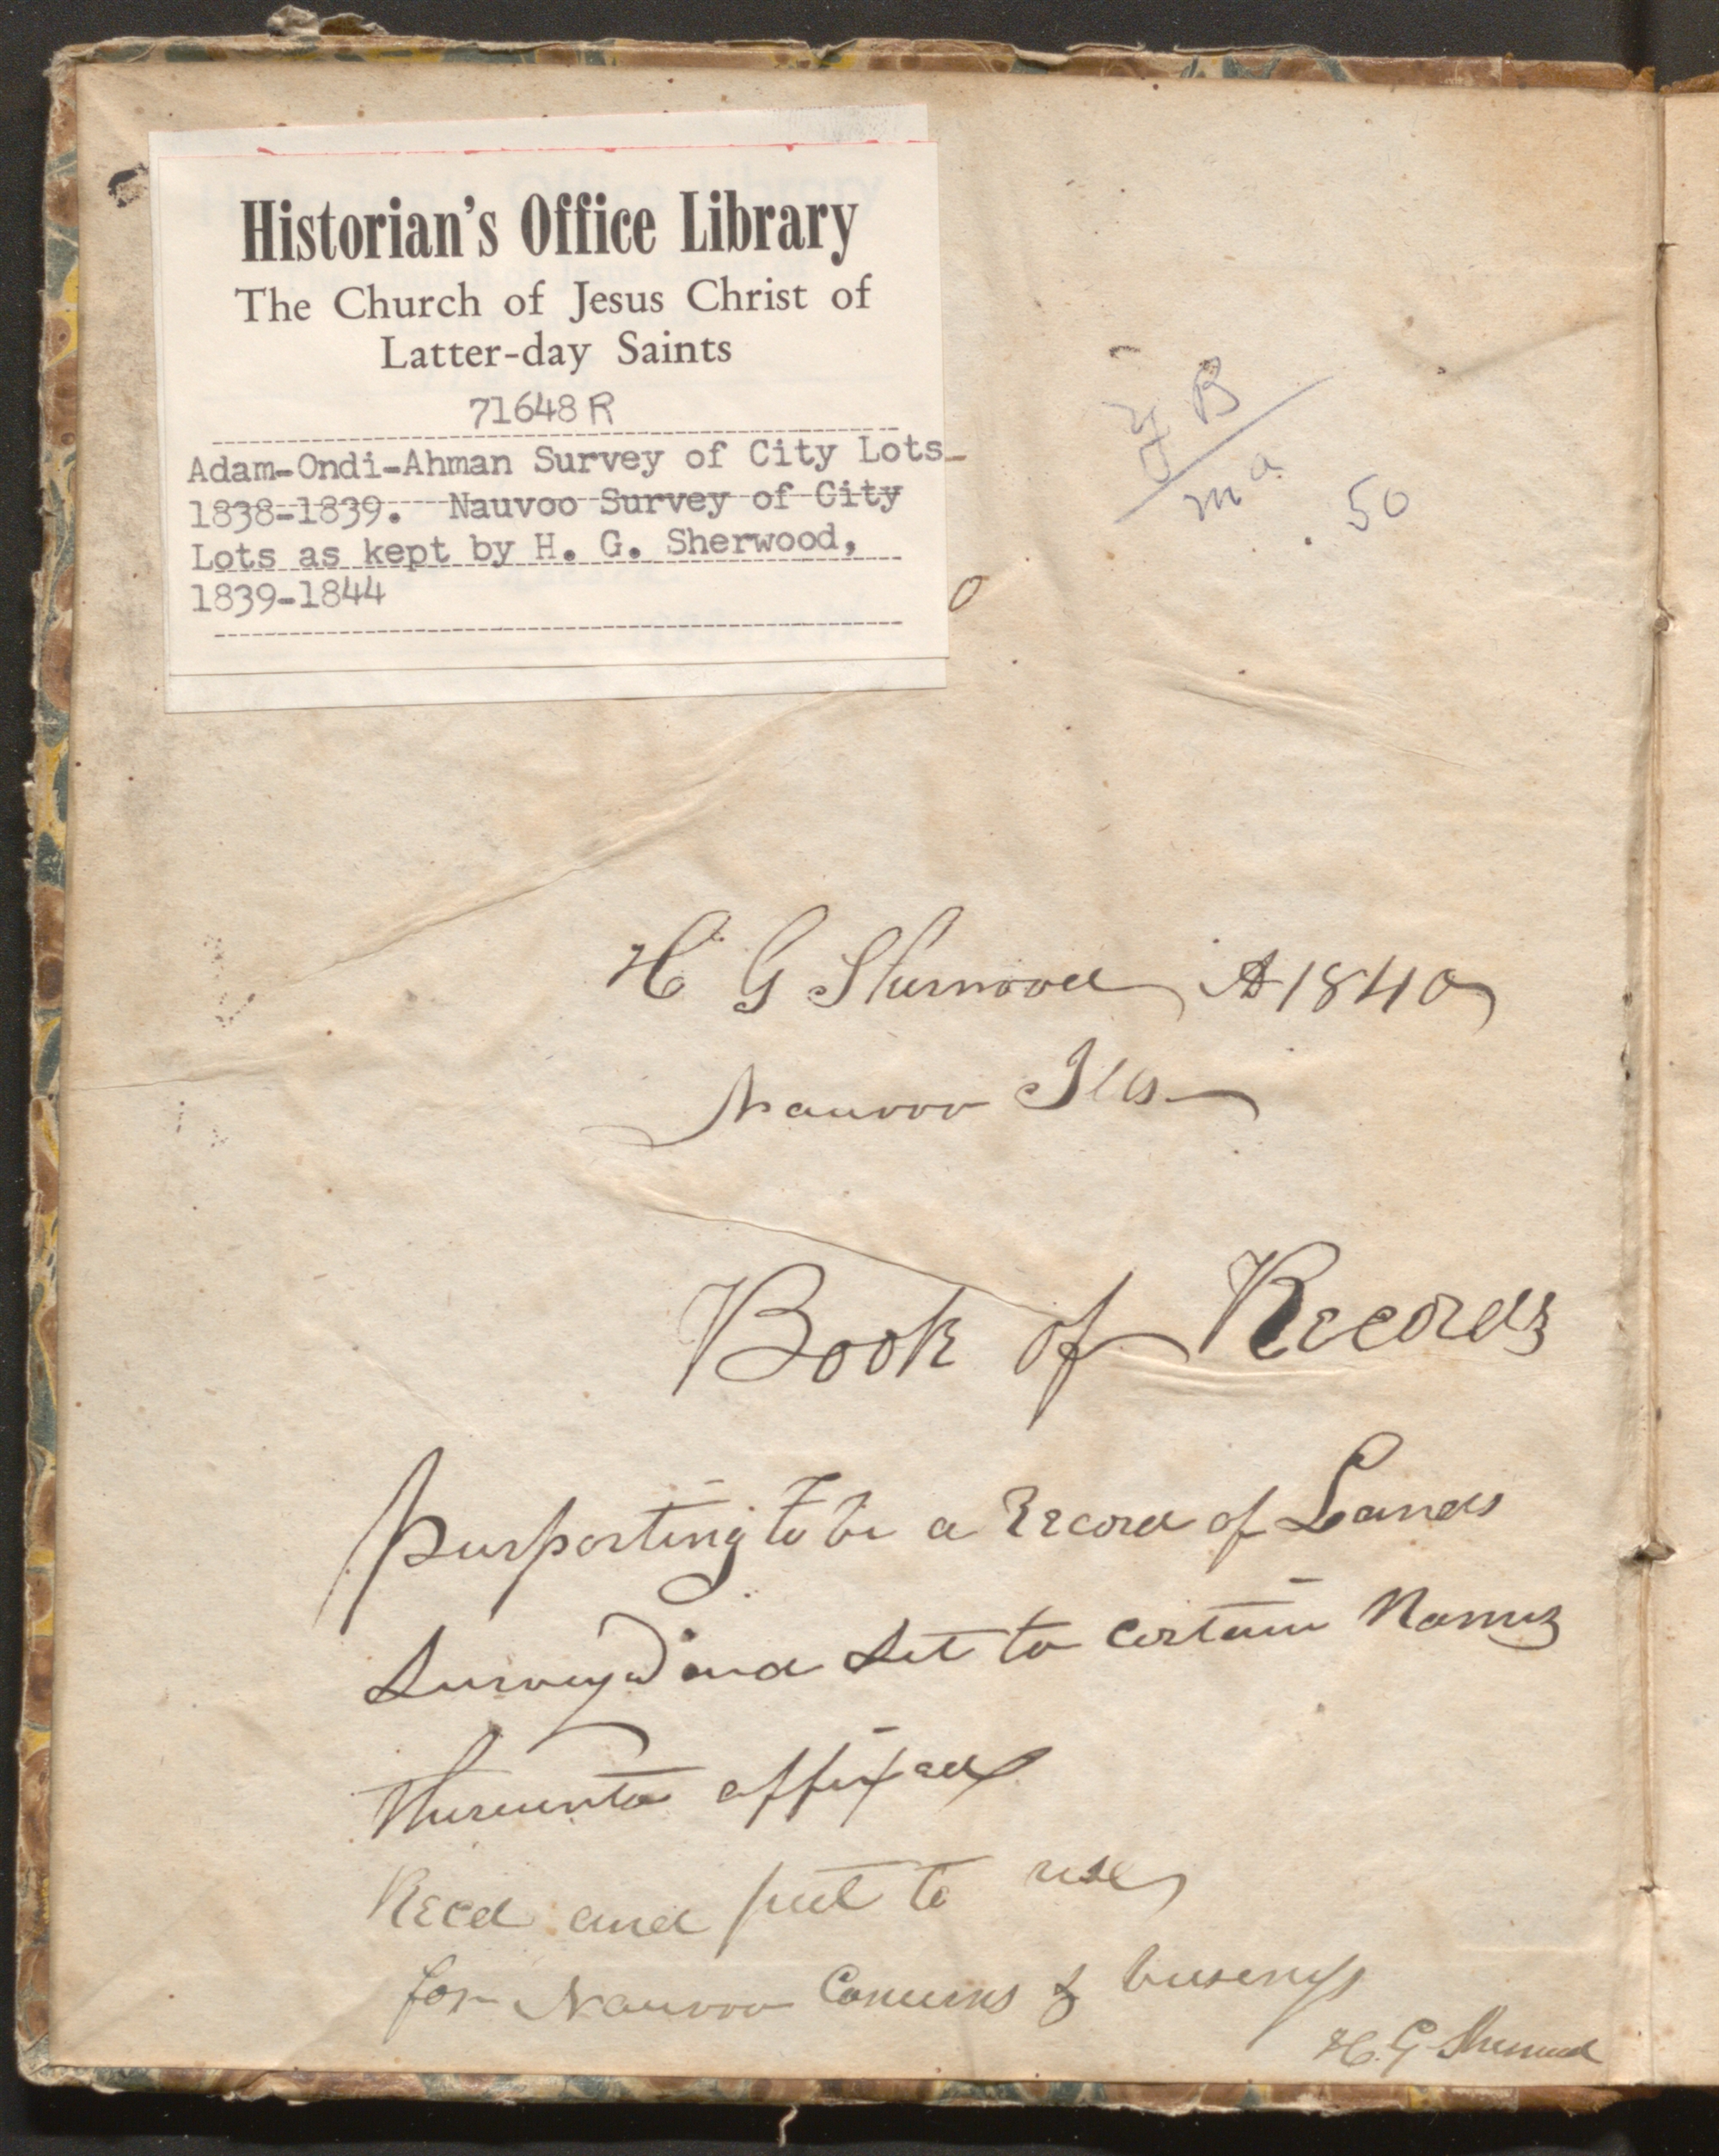 Historian's Office Library
The Church of Jesus Christ of
Latter-day Saints
71648 R
Adam-Ondi-Ahman Survey of City Lots
1838-1839. Nauvoo Survey of City
Lots as kept by H. G. Sherwood,
1839-1844
B
ma
.50
H G Sherwood A 1840
Nauvoo Ills
Book of Records
Purporting to be a Record of Lands
Surveyd and Set to certain Names
thereunto affixed
Recd and put to use
for Nauvoo Concerns & buseness
H. G Sherwood